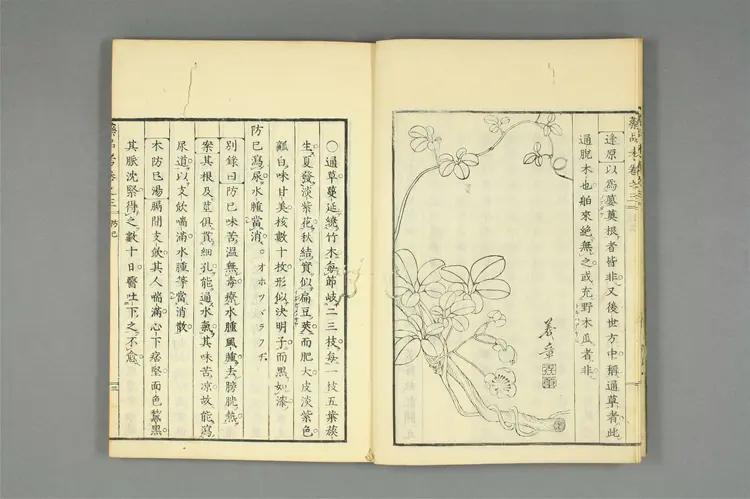 達原以爲萆薢根者皆非又後世方中稱通草者此
通脫木也舶來絶無之或充野木瓜者非
義章
〇通草蔓延繞竹木每節岐二三枝每一枝五葉簇
生夏發淡紫花秋結實似扁豆莢而肥大皮淡紫色
瓤白味甘美核數十枚形似決明子而黑如漆
防已瀉尿水腫當消。オホツヾラフヂ
別錄曰防已味苦溫無毒療水腫風腫去膀胱熱
案其根及莖俱貫細孔能通水氣其味苦凉故能瀉
尿道以支飮喘滿水腫等當消散
木防已湯膈間支飮其人喘滿心下痞堅面色黧黑
其脈沈緊得之數十日醫吐下之不愈